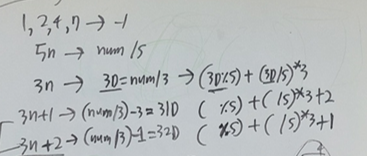 1, 2, 4, 7 → -1
5n → num /5
3n → 3D = num/3 → (3D%5) + (3D/5)*3
3n+1 → (num/3)-3 = 31D ( %5) + ( /5)*3+2
3n+2 → (num/3)-1 = 32D ( %5) + ( /5)*3+1